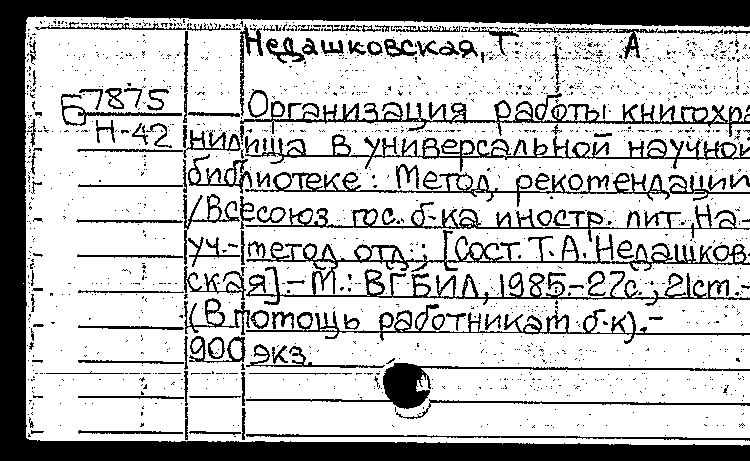 Недашковская, Т. А
Б 7875
Н-42
Организация работы книгохра
нилища в универсальной научной
библиотеке: Метод. рекомендации
/Всесоюз. гос. б-ка иностр. лит., На-
уч.-метод. отд.; [Сост. Т.А. Недашков-
ская].-М.: ВГБИЛ, 1985.-27с.; 21см.-
(В помощь работникам б-к).-
900 экз.